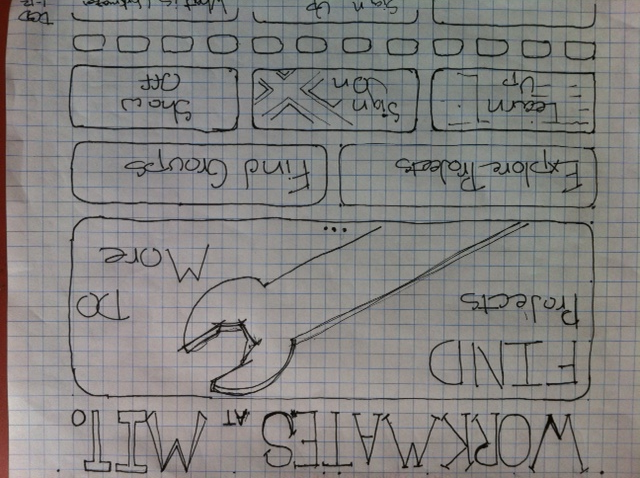 WORKMATES AT MIT
FIND
Projects
DO
More
...
Explore Projects
Find Groups
Learn
Up
Sign
On
Show
Off
Sign Up
What is